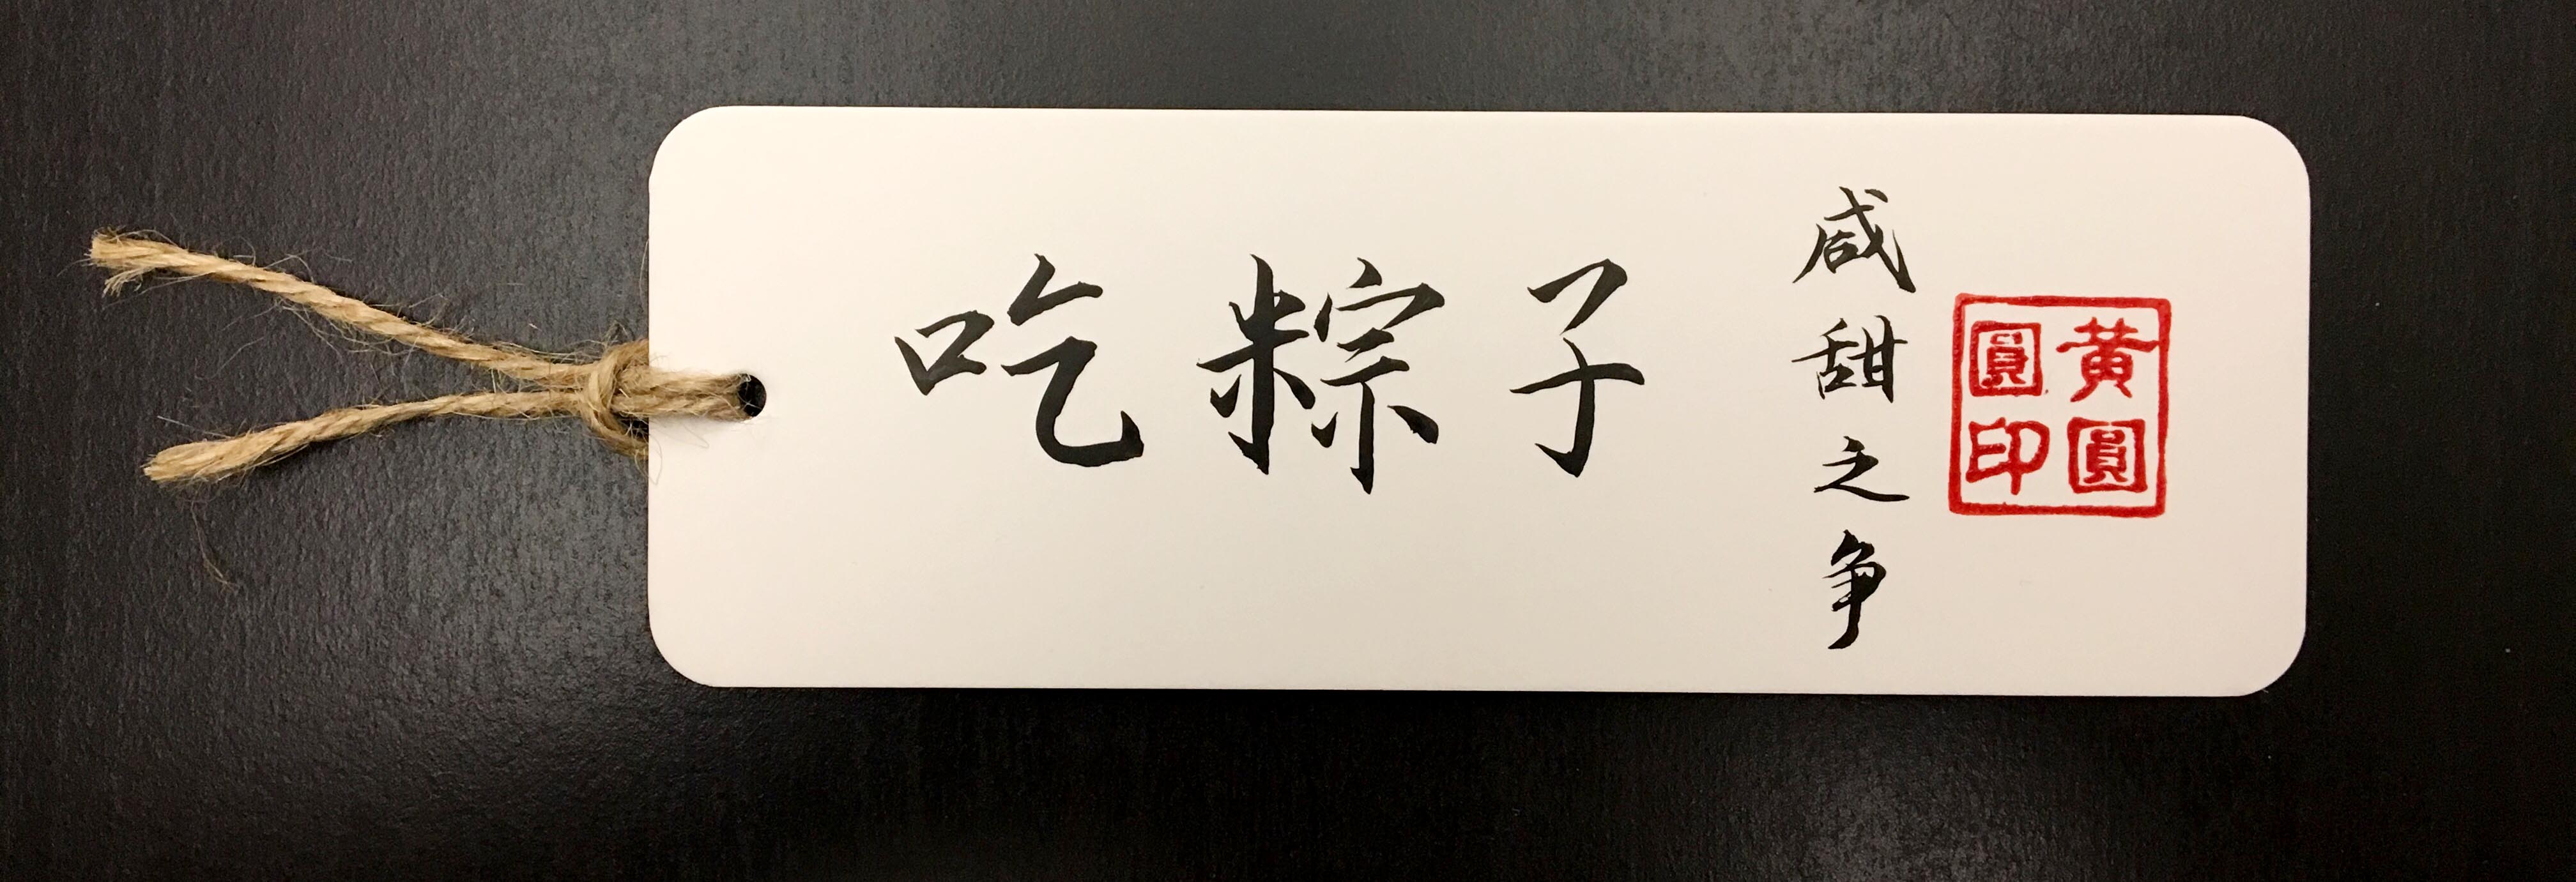 吃粽子
咸甜之争
黄圓
圓印